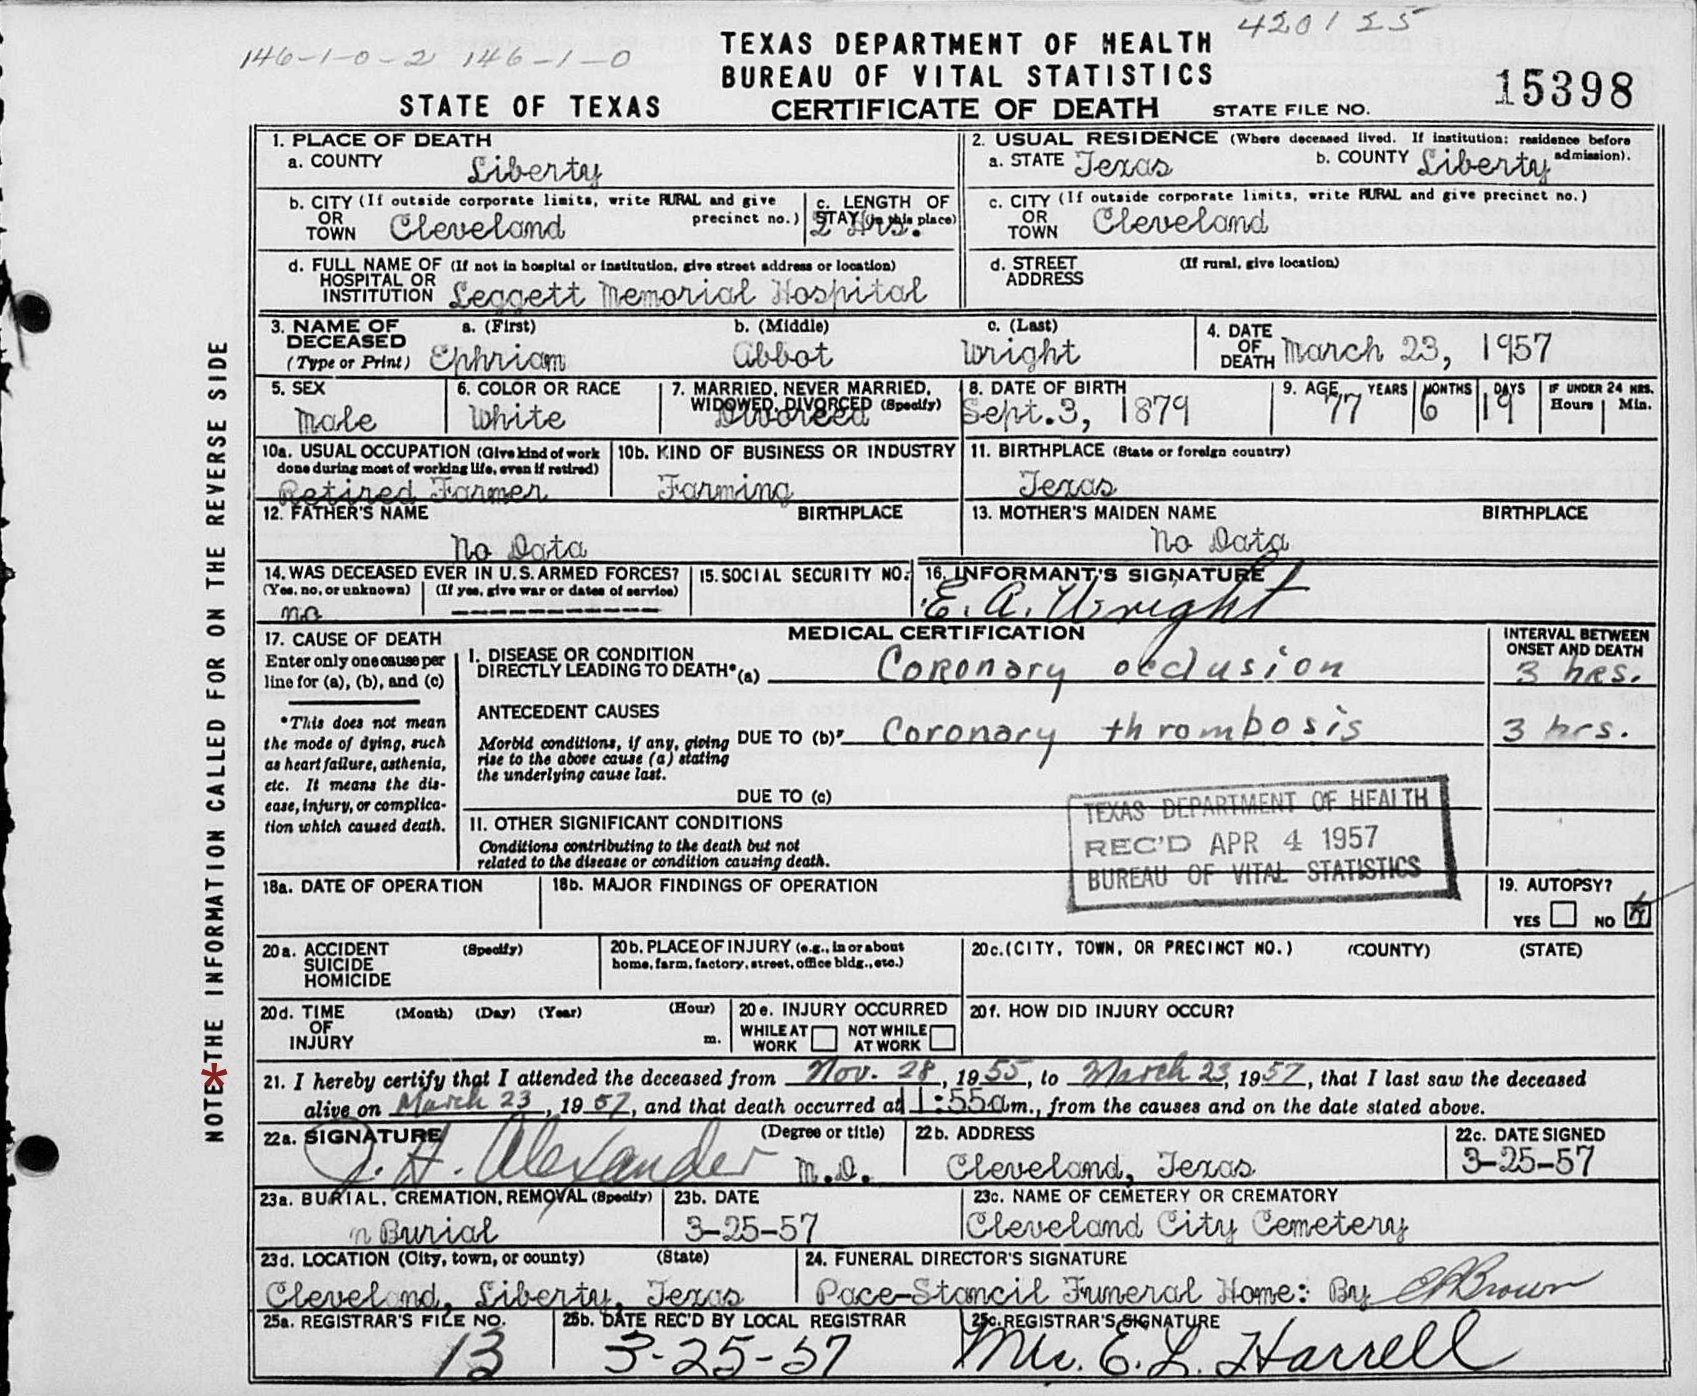 420125
146-1-0-2 146-1-0
TEXAS DEPARTMENT OF HEALTH
BUREAU OF VITAL STATISTICS
STATE OF TEXAS CERTIFICATE OF DEATH STATE FILE NO. 15398
NOTE * THE INFORMATION CALLED FOR ON THE REVERSE SIDE
1. PLACE OF DEATH
a. COUNTY Liberty
2. USUAL RESIDENCE (Where deceased lived. If institution: residence before admission).
a. STATE Texas b. COUNTY Liberty
b. CITY (If outside corporate limits, write RURAL and give precinct no.)
OR
TOWN Cleveland
c. LENGTH OF
STAY (in this place)
2 Hrs.
c. CITY (If outside corporate limits, write RURAL and give precinct no.)
OR
TOWN Cleveland
d. FULL NAME OF (If not in hospital or institution, give street address or location)
HOSPITAL OR
INSTITUTION Leggett Memorial Hospital
d. STREET (If rural, give location)
ADDRESS
3. NAME OF DECEASED
(Type or Print)
a. (First) Ephriam
b. (Middle) Abbot
c. (Last) Wright
4. DATE OF DEATH March 23, 1957
5. SEX Male
6. COLOR OR RACE White
7. MARRIED, NEVER MARRIED,
WIDOWED, DIVORCED (Specify)
Divorced
8. DATE OF BIRTH Sept. 3, 1879
9. AGE 77 YEARS 6 MONTHS 19 DAYS IF UNDER 24 HRS. Hours Min.
10a. USUAL OCCUPATION (Give kind of work
done during most of working life, even if retired)
Retired Farmer
10b. KIND OF BUSINESS OR INDUSTRY
Farming
11. BIRTHPLACE (State or foreign country)
Texas
12. FATHER'S NAME BIRTHPLACE
No Data
13. MOTHER'S MAIDEN NAME BIRTHPLACE
No Data
14. WAS DECEASED EVER IN U.S. ARMED FORCES?
(Yes, no, or unknown) (If yes, give war or dates of service)
no
15. SOCIAL SECURITY NO.
16. INFORMANT'S SIGNATURE
E. A. Wright
17. CAUSE OF DEATH
Enter only one cause per
line for (a), (b), and (c)
*This does not mean
the mode of dying, such
as heart failure, asthenia,
etc. It means the dis-
ease, injury, or complica-
tion which caused death.
MEDICAL CERTIFICATION
INTERVAL BETWEEN
ONSET AND DEATH
I. DISEASE OR CONDITION
DIRECTLY LEADING TO DEATH* (a) Coronary occlusion 3 hrs.
ANTECEDENT CAUSES
Morbid conditions, if any, giving
rise to the above cause (a) stating
the underlying cause last.
DUE TO (b) Coronary thrombosis 3 hrs.
DUE TO (c)
II. OTHER SIGNIFICANT CONDITIONS
Conditions contributing to the death but not
related to the disease or condition causing death.
TEXAS DEPARTMENT OF HEALTH
REC'D APR 4 1957
BUREAU OF VITAL STATISTICS
18a. DATE OF OPERATION
18b. MAJOR FINDINGS OF OPERATION
19. AUTOPSY?
YES NO
20a. ACCIDENT (Specify)
SUICIDE
HOMICIDE
20b. PLACE OF INJURY (e.g., in or about
home, farm, factory, street, office bldg., etc.)
20c. (CITY, TOWN, OR PRECINCT NO.) (COUNTY) (STATE)
20d. TIME (Month) (Day) (Year) (Hour)
OF
INJURY m.
20e. INJURY OCCURRED
WHILE AT WORK NOT WHILE AT WORK
20f. HOW DID INJURY OCCUR?
21. I hereby certify that I attended the deceased from Nov. 28, 1955, to March 23, 1957, that I last saw the deceased
alive on March 23, 1957, and that death occurred at 1:55 am., from the causes and on the date stated above.
22a. SIGNATURE (Degree or title)
J. H. Alexander M.D.
22b. ADDRESS
Cleveland, Texas
22c. DATE SIGNED
3-25-57
23a. BURIAL, CREMATION, REMOVAL (Specify)
Burial
23b. DATE
3-25-57
23c. NAME OF CEMETERY OR CREMATORY
Cleveland City Cemetery
23d. LOCATION (City, town, or county) (State)
Cleveland, Liberty, Texas
24. FUNERAL DIRECTOR'S SIGNATURE
Pace-Stancil Funeral Home: By Brown
25a. REGISTRAR'S FILE NO.
13
25b. DATE REC'D BY LOCAL REGISTRAR
3-25-57
25c. REGISTRAR'S SIGNATURE
Mrs. E. L. Harrell